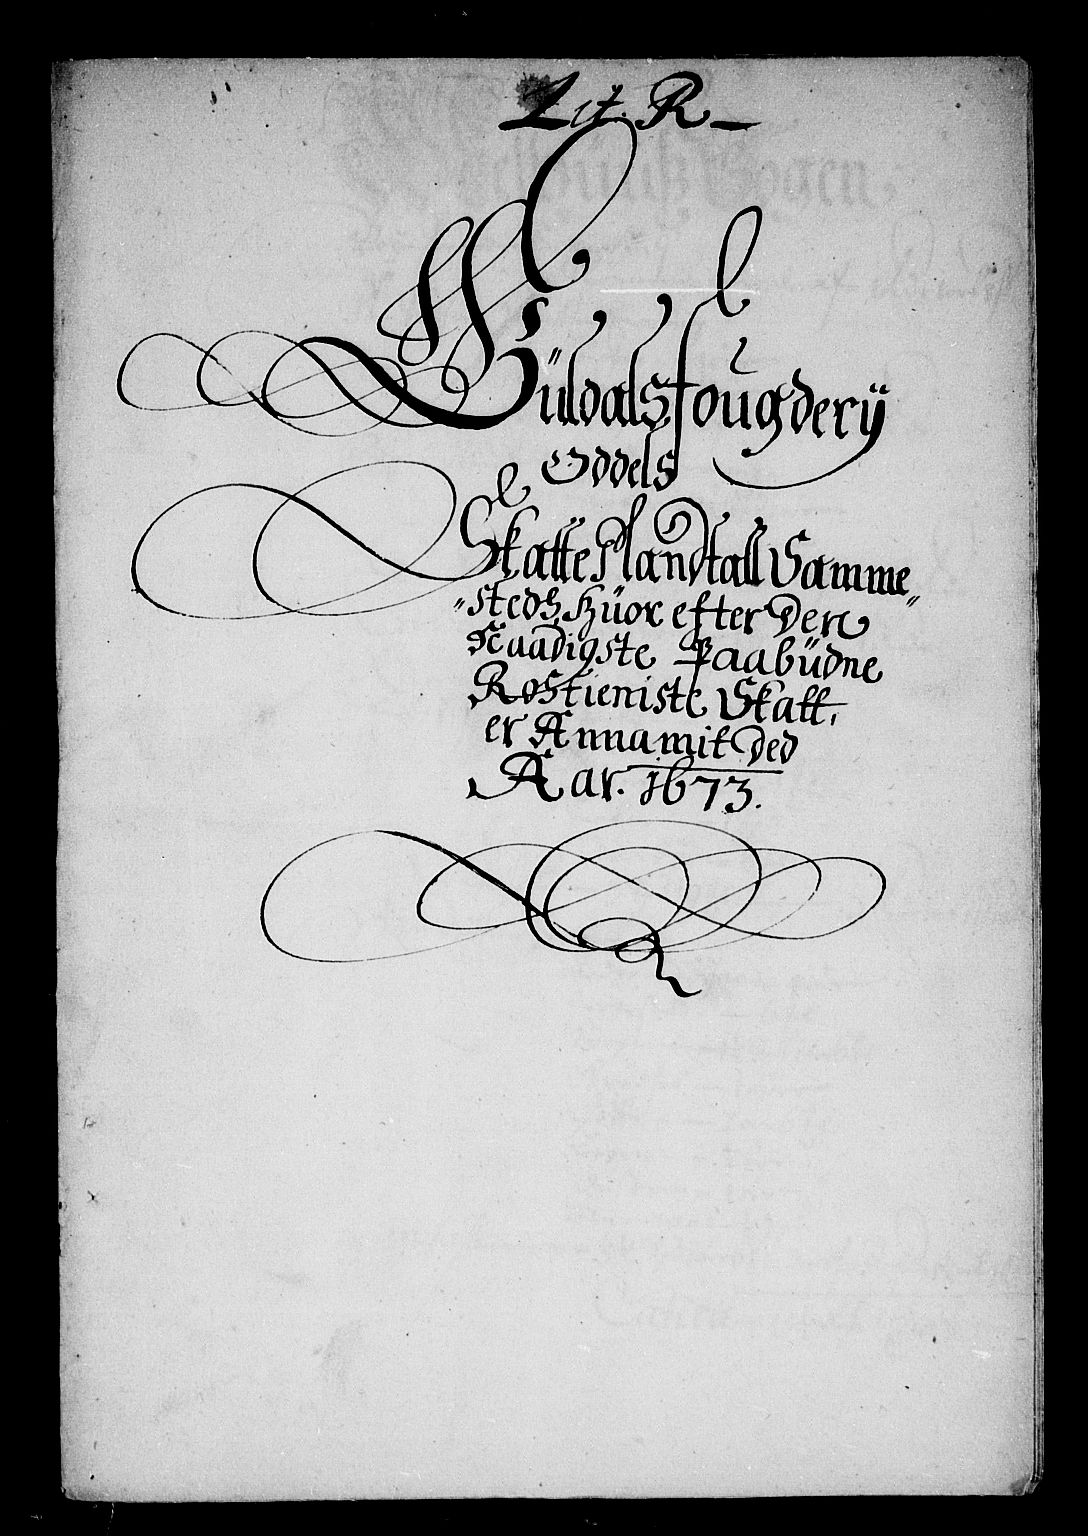 Lit. R
Güldals fougderÿ
Oddels
Skatte Mandtall Samme
steds huor efter Den
Naadigste Paabüdne
Rostieniste Skatt,
er Annamit Ded
Aar. 1673.